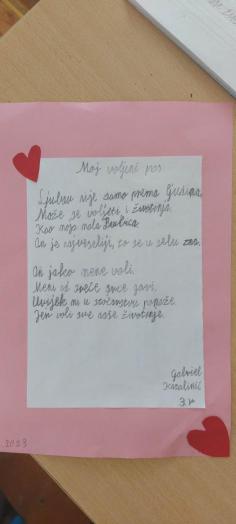 Moj voljeni pas
Ljubav nije samo prema ljudima,
Može se voljeti i životinja.
Kao moja mala Bubica
On je najveseliji, to se u selu zna.
On jako mene voli.
Meni od sreće srce zavi,
Uvijek mi u stočarstvu pomaže
Jer voli sve naše životinje.
Gabriel
3.r
2023